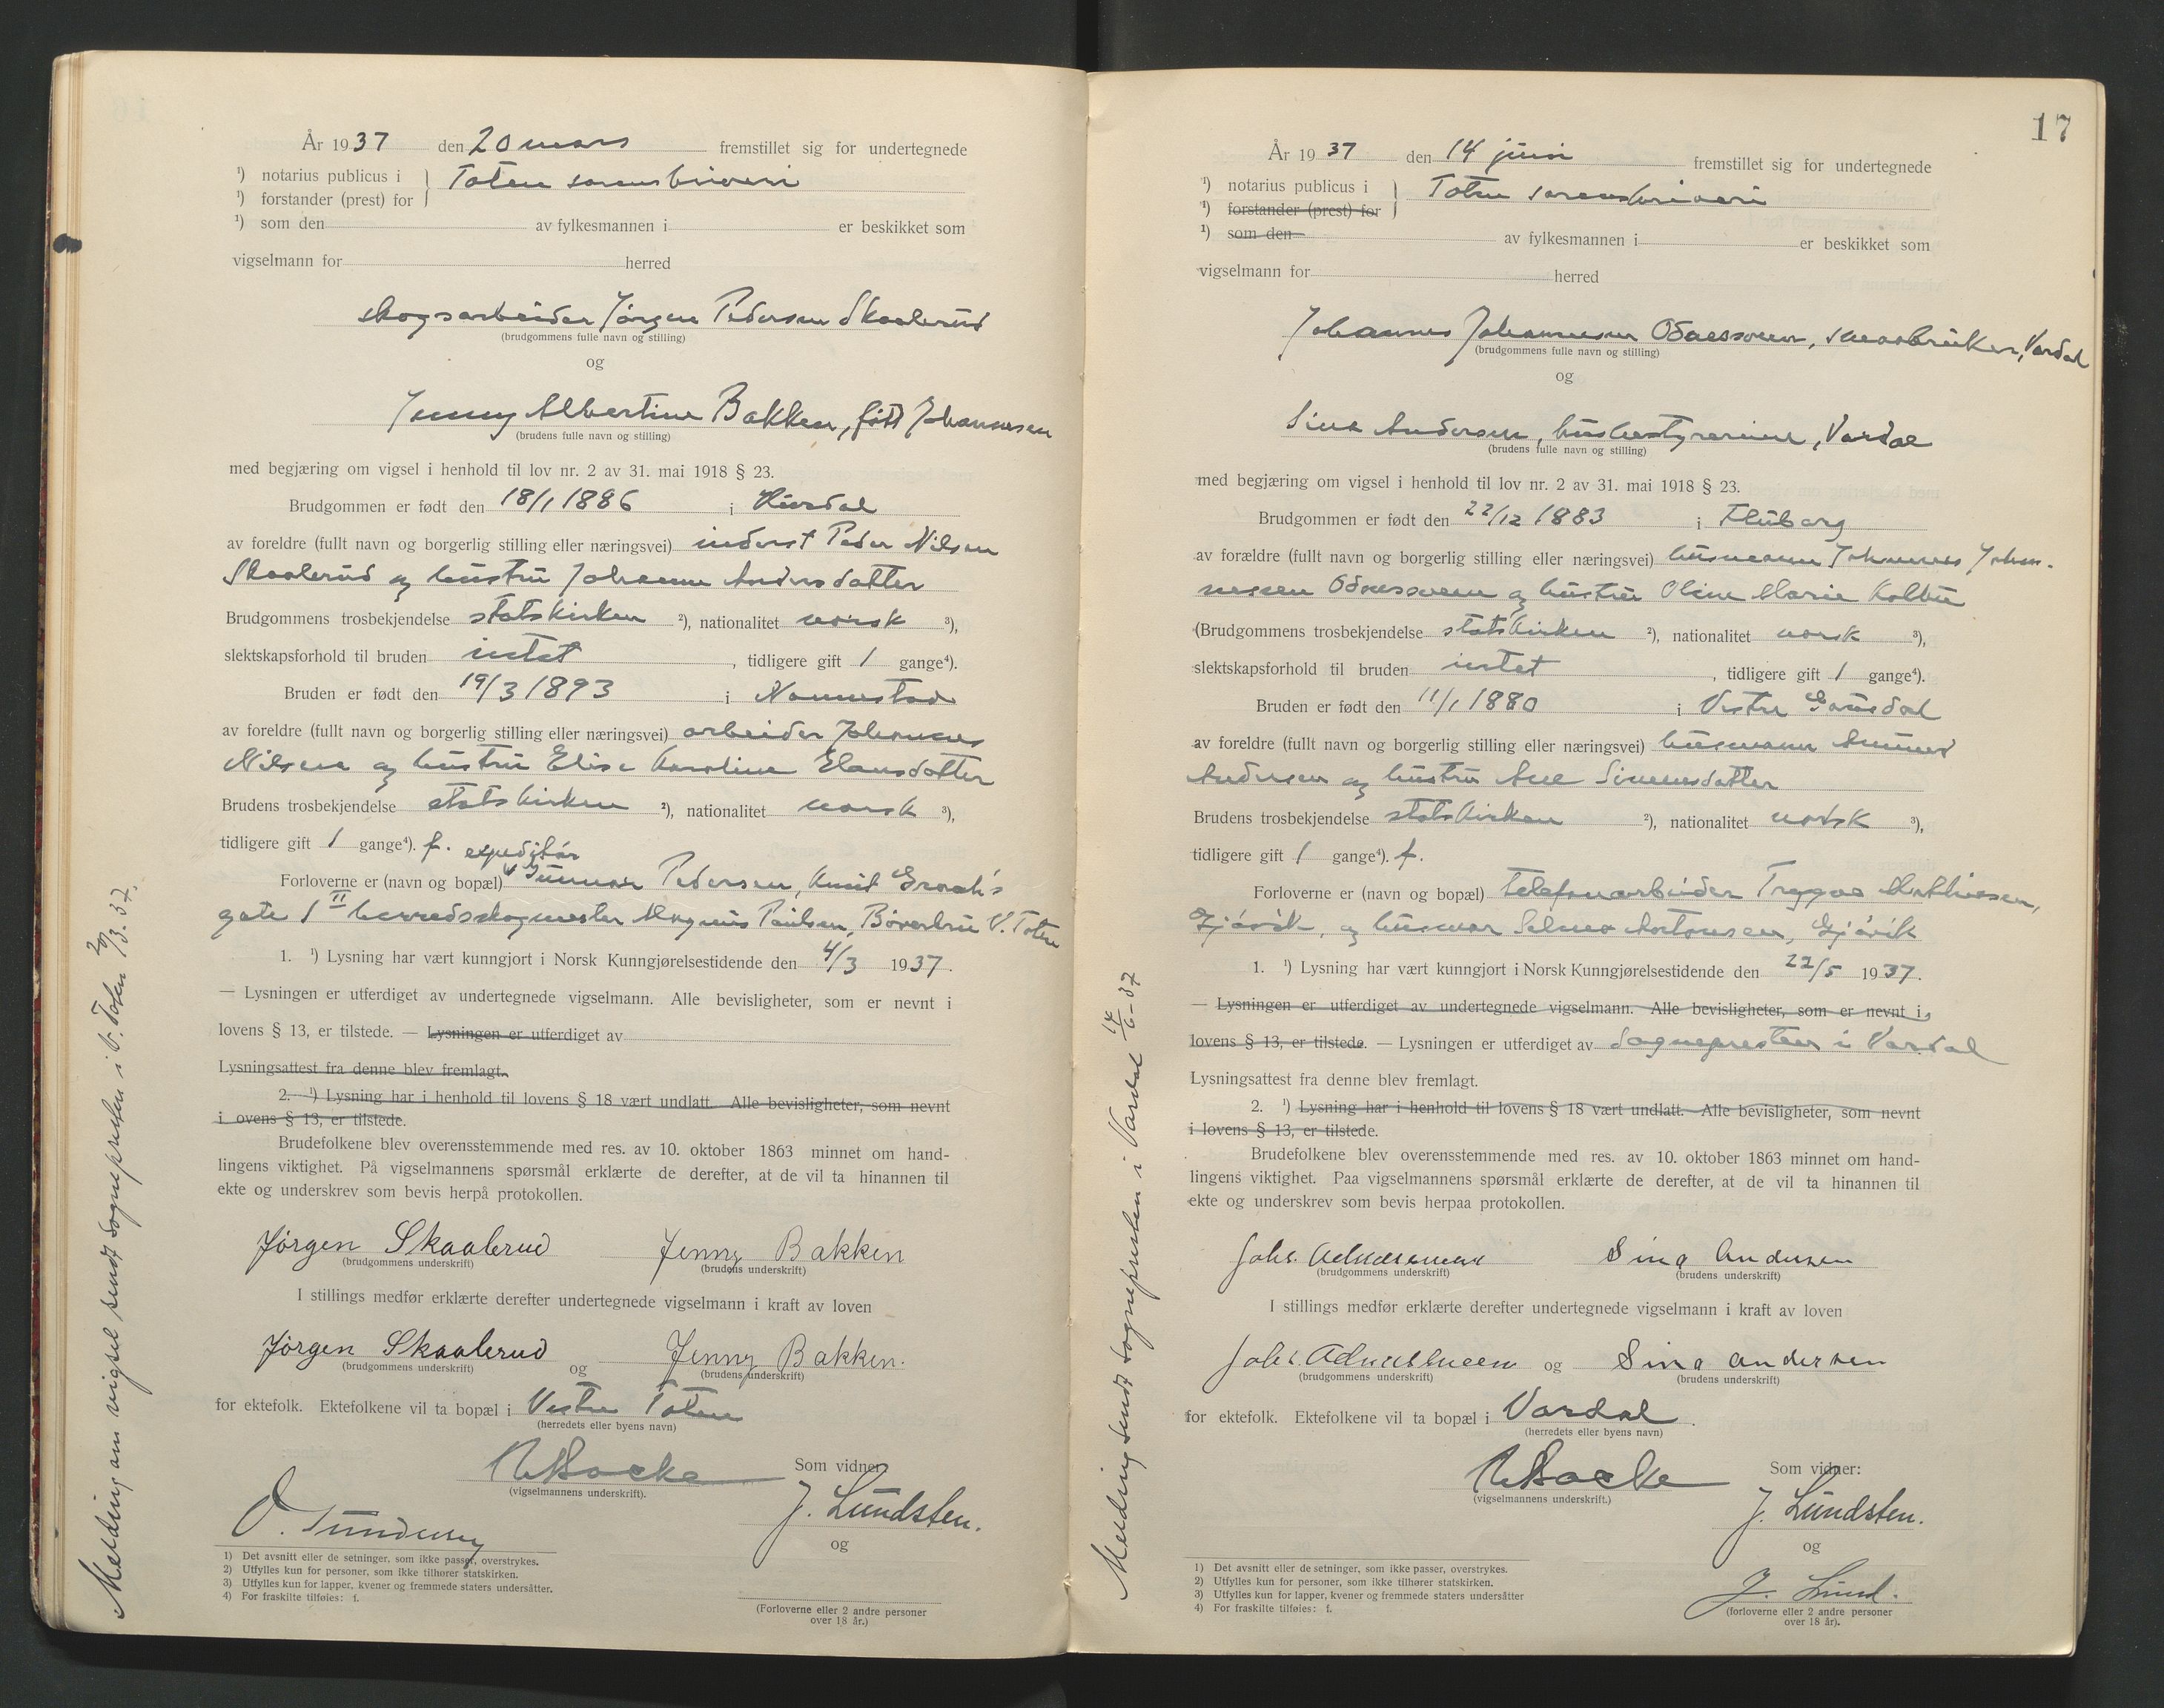 År 1937 den 20 mars fremstillet sig for undertegnede
¹) notarius publicus i } Toten sorenskriveri
¹) forstander (prest) for
¹) som den av fylkesmannen i er beskikket som
vigselmann for herred
skogsarbeider Jørgen Pedersen Skaalerud
(brudgommens fulle navn og stilling)
og
Jenny Albertine Bakken, født Johannesen
(brudens fulle navn og stilling)
med begjæring om vigsel i henhold til lov nr. 2 av 31. mai 1918 § 23.
Brudgommen er født den 18/1 1886 i Hurdal
av foreldre (fullt navn og borgerlig stilling eller næringsvei) inderst Peder Nilsen
Skaalerud og hustru Johanne Andersdatter
Brudgommens trosbekjendelse statskirken ²), nationalitet norsk ³),
slektskapsforhold til bruden intet, tidligere gift 1 gange⁴).
Bruden er født den 19/3 1893 i Nannestad
av foreldre (fullt navn og borgerlig stilling eller næringsvei) arbeider Johannes
Nilsen og hustru Elise Karoline Hansdatter
Brudens trosbekjendelse statskirken ²), nationalitet norsk ³),
tidligere gift 1 gange⁴). f. expeditør
Forloverne er (navn og bopæl) Gunnar Pedersen, Knud Graah's
gate 1 II herredsskogmester Magnus Paulsen, Bøverbru V. Toten
1. ¹) Lysning har vært kunngjort i Norsk Kunngjørelsestidende den 4/3 1937.
— Lysningen er utferdiget av undertegnede vigselmann. Alle bevisligheter, som er nevnt i
lovens § 13, er tilstede. — Lysningen er utferdiget av
Lysningsattest fra denne blev fremlagt.
2. ¹) Lysning har i henhold til lovens § 18 vært undlatt. Alle bevisligheter, som nevnt
i ovens § 13, er tilstede.
Brudefolkene blev overensstemmende med res. av 10. oktober 1863 minnet om hand-
lingens viktighet. På vigselmannens spørsmål erklærte de derefter, at de vil ta hinannen til
ekte og underskrev som bevis herpå protokollen.
Jørgen Skaalerud Jenny Bakken
(brudgommens underskrift) (brudens underskrift)
I stillings medfør erklærte derefter undertegnede vigselmann i kraft av loven
Jørgen Skaalerud og Jenny Bakken.
(brudgommens underskrift) (brudens underskrift)
for ektefolk. Ektefolkene vil ta bopæl i Vestre Toten
(herredets eller byens navn)
Som vidner
(vigselmannens underskrift).
J. Lundsten.
og
1) Det avsnitt eller de setninger, som ikke passer, overstrykes.
2) Utfylles kun for personer, som ikke tilhører statskirken.
3) Utfylles kun for lapper, kvener og fremmede staters undersåtter.
4) For fraskilte tilføies: f.
(Forloverne eller 2 andre personer
over 18 år.)
Melding om vigsel sendt sognepresten i V. Toten 20/3. 37.
17
År 1937 den 14 juni fremstillet sig for undertegnede
¹) notarius publicus i } Toten sorenskriveri
¹) forstander (prest) for
¹) som den av fylkesmannen i er beskikket som
vigselmann for herred
Johannes Johannesen Odnessveen, smaabruker, Vardal
(brudgommens fulle navn og stilling)
og
Sina Andersen, husbestyrerinne, Vardal
(brudens fulle navn og stilling)
med begjæring om vigsel i henhold til lov nr. 2 av 31. mai 1918 § 23.
Brudgommen er født den 22/12 1883 i Fluberg
av forældre (fullt navn og borgerlig stilling eller næringsvei) husmann Johannes Johan-
nessen Odnessveen og hustru Oline Marie Kolbu
(Brudgommens trosbekjendelse statskirken ²), nationalitet norsk ³),
slektskapsforhold til bruden intet, tidligere gift 1 gange⁴).
Bruden er født den 11/1 1880 i Vestre Gausdal
av foreldre (fullt navn og borgerlig stilling eller næringsvei) husmann
Andersen og hustru Ane Simensdatter
Brudens trosbekjendelse statskirken ²), nationalitet norsk ³),
tidligere gift 1 gange⁴). f.
Forloverne er (navn og bopæl) telefonarbeider Trygve Mathiesen,
Gjøvik, og husmor Selma Antonsen, Gjøvik
1. ¹) Lysning har vært kunngjort i Norsk Kunngjørelsestidende den 22/5 1937.
— Lysningen er utferdiget av undertegnede vigselmann. Alle bevisligheter, som er nevnt i
lovens § 13, er tilstede. — Lysningen er utferdiget av Sognepresten i Vardal
Lysningsattest fra denne blev fremlagt.
2. ¹) Lysning har i henhold til lovens § 18 vært undlatt. Alle bevisligheter, som nevnt
i lovens § 13, er tilstede.
Brudefolkene blev overensstemmende med res. av 10. oktober 1863 minnet om hand-
lingens viktighet. Paa vigselmannens spørsmål erklærte de derefter, at de vil ta hinannen til
ekte og underskrev som bevis herpaa protokollen.
Johs. Sina Andersen
(brudgommens underskrift) (brudens underskrift)
I stillings medfør erklærte derefter undertegnede vigselmann i kraft av loven
Johs. og Sina Andersen
(brudgommens underskrift) (brudens underskrift)
for ektefolk. Ektefolkene vil ta bopæl i Vardal.
(herredets eller byens navn)
Som vidner:
(vigselmannens underskrift.)
J. Lundsten.
og
J. Lund.
1) Det avsnitt eller de setninger, som ikke passer, overstrykes.
2) Utfylles kun for personer, som ikke tilhører statskirken.
3) Utfylles kun for lapper, kvener og fremmede staters undersåtter
4) For fraskilte tilføies: f.
(forloverne eller 2 andre personer
over 18 år).
Melding sendt sognepresten i Vardal 14/6-37